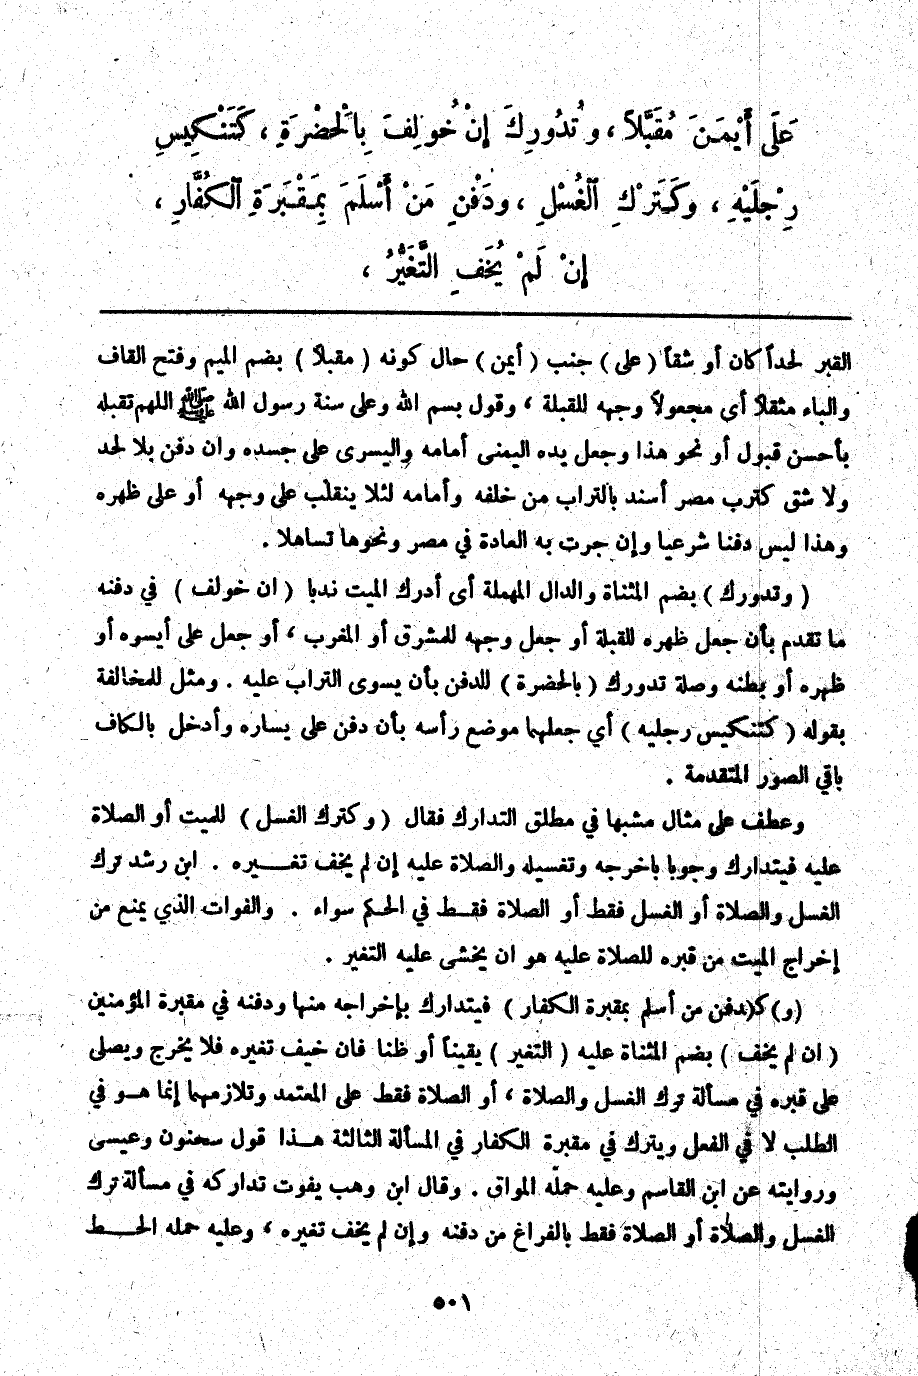 عَلَى أَيْمَنَ مُقَبَّلاً ، و تُدُورِكَ إِنْ خُولِفَ بِالْحَضْرَةِ ، كَتَنْكِيسِ
رِجْلَيْهِ ، وكَتَرْكِ ٱلْغُسْلِ ، ودَفْنِ مَنْ أَسْلَمَ بِمَقْبَرَةِ ٱلْكُفَّارِ ،
إِنْ لَمْ يُخَفِ التَّغَيُّرُ ،
القبر لحداً كان أو شقاً ( على ) جنب ( أيمن ) حال كونه ( مقبلاً ) بضم الميم وفتح القاف
والباء مثقلاً أى مجعولاً وجهه للقبلة ، وقول بسم الله وعلى سنة رسول الله ﷺ اللهم تقبله
بأحسن قبول أو نحو هذا وجعل يده اليمنى أمامه واليسرى على جسده وان دفن بلا لحد
ولا شق كترب مصر أسند بالتراب من خلفه وأمامه لئلا ينقلب على وجهه أو على ظهره
وهذا ليس دفنا شرعيا وإن جرت به العادة في مصر ونحوها تساهلا .
( وتدورك ) بضم المثناة والدال المهملة أى أدرك الميت ندبا ( ان خولف ) في دفنه
ما تقدم بأن جعل ظهره للقبلة أو جعل وجهه للمشرق أو المغرب ، أو جعل على أيسوه أو
ظهره أو بطنه وصلة تدورك ( بالحضرة ) للدفن بأن يسوى التراب عليه . ومثل للمخالفة
بقوله ( كتنكيس رجليه ) أي جعلهما موضع رأسه بأن دفن على يساره وأدخل بالكاف
باقي الصور المتقدمة .
وعطف على مثال مشبها في مطلق التدارك فقال ( وكترك الغسل ) للميت أو الصلاة
عليه فيتدارك وجوبا باخرجه وتغسيله والصلاة عليه إن لم يخف تغــيره . ابن رشد ترك
الغسل والصلاة أو الغسل فقط أو الصلاة فقــط في الحـكم سواء . والفوات الذي يمنع من
إخراج الميت من قبره للصلاة عليه هو ان يخشى عليه التغير .
(و) كـ(دفن من أسلم بمقبرة الكفار ) فيتدارك بإخراجه منها ودفنه في مقبرة المؤمنين
( ان لم يخف ) بضم المثناة عليه ( التغير ) يقيناً أو ظنا فان خيف تغيره فلا يخرج ويصلى
على قبره في مسألة ترك الغسل والصلاة ، أو الصلاة فقط على المعتمد وتلازمهما إنما هــو في
الطلب لا في الفعل ويترك في مقبرة الكفار في المسألة الثالثة هــذا قول سحنون وعيسى
وروايته عن ابن القاسم وعليه حمله المواق . وقال ابن وهب يفوت تداركه في مسألة ترك
الغسل والصلاة أو الصلاة فقط بالفراغ من دفنه وإن لم يخف تغيره ، وعليه حمله الحــط
٥٠١